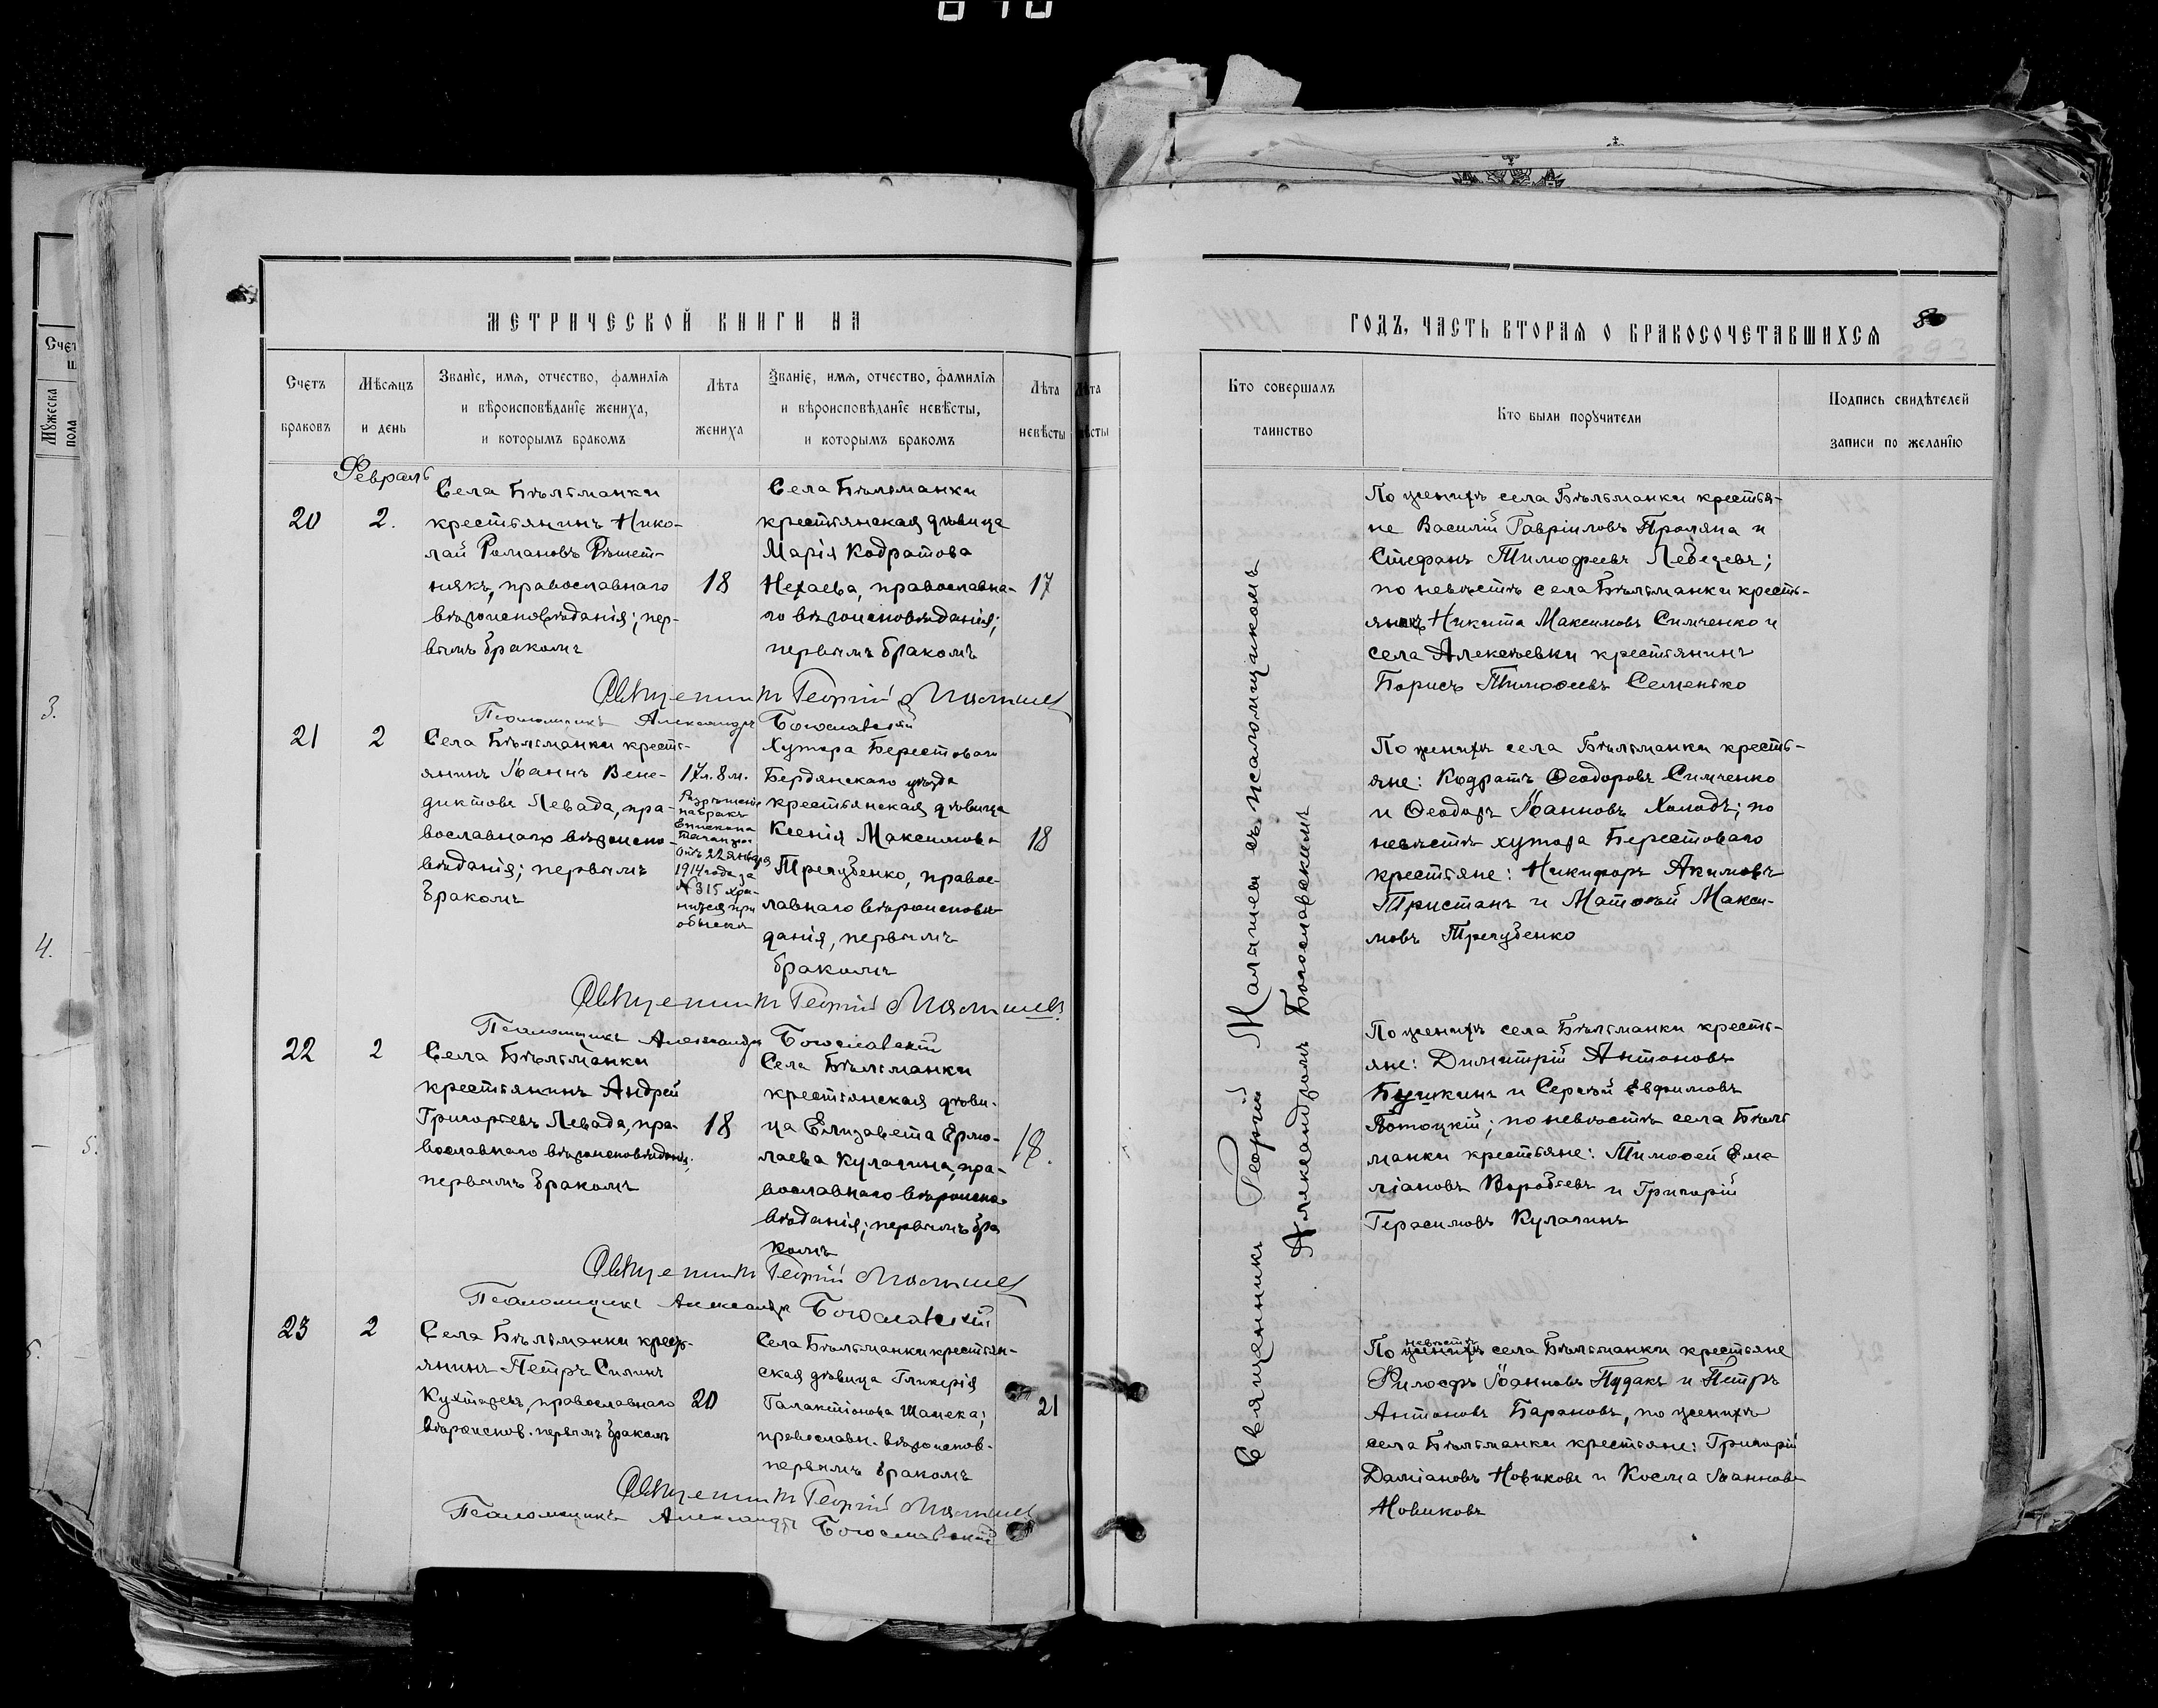 МЕТРИЧЕСКОЙ КНИГИ НА
Счетъ браковъ
Мѣсяцъ и день
Званіе, имя, отчество, фамилія и вѣроисповѣданіе жениха, и которымъ бракомъ
Лѣта жениха
Званіе, имя, отчество, фамилія и вѣроисповѣданіе невѣсты, и которымъ бракомъ
Лѣта невѣсты
Февраль
20
2.
Села Бѣльманки
крестьянинъ Нико-
лай Романовъ Рѣшет-
някъ, православнаго
вѣроисповѣданія; пер-
вымъ бракомъ
18
Села Бѣльманки
крестьянская дѣвица
Марія Кодратова
Нехаева, православна-
го вѣроисповѣданія;
первымъ бракомъ
17
Священникъ Георгій
Псаломщикъ Александръ Богославскій
21
2
Села Бѣльманки кресть-
янинъ Іоаннъ Вене-
диктовъ Левада, пра-
вославнаго вѣроиспо-
вѣданія; первымъ
бракомъ
17л. 8 м.
Разрѣшеніе
на бракъ
Епископа
отъ 22 января
1914 года за
№ 315 хра-
нится при
обыскѣ
Хутора Берестоваго
Бердянскаго уѣзда
крестьянская дѣвица
Ксенія Максимова
Трегубенко, правос-
лавнаго вѣроисповѣ-
данія, первымъ
бракомъ
18
Священникъ Георгій
Псаломщикъ Александръ Богославскій
22
2
Села Бѣльманки
крестьянинъ Андрей
Григорьевъ Левада, пра-
вославнаго вѣроисповѣданія;
первымъ бракомъ
18
Села Бѣльманки
крестьянская дѣви-
ца Елизавета Ермо-
лаева Кулагина, пра-
вославнаго вѣроиспо-
вѣданія; первымъ бра
комъ
18.
Священникъ Георгій
Псаломщикъ Александръ Богославскій
23
2
Села Бѣльманки крест-
янинъ Петръ Силинъ
Кухтаревъ, православнаго
вѣроиспов. первымъ бракомъ
20
Села Бѣльманки крестьян-
ская дѣвица Гликерія
Галактіонова Шапека;
православн. вѣроиспов.
первымъ бракомъ
21
Священникъ Георгій
Псаломщикъ Александръ Богославскій
ГОДЪ, ЧАСТЬ ВТОРАЯ О БРАКОСОЧЕТАВШИХСЯ
8
Кто совершалъ таинство
Кто были поручители
Подпись свидѣтелей записи по желанію
Священникъ Георгій Малышевъ съ псаломщикомъ
Александромъ Богославскимъ
По женихѣ села Бѣльманки крестья-
не Василій Гавріиловъ Проляпа и
Стефанъ Тимофеевъ Лебедевъ;
по невѣстѣ села Бѣльманки кресть-
янинъ Никита Максимовъ Симченко и
села Алексѣевки крестьянинъ
Борисъ Тимоѳеевъ Семенько
По женихѣ села Бѣльманки кресть-
яне: Кодратъ Ѳеодоровъ Симченко
и Ѳеодоръ Іоанновъ Холодъ; по
невѣстѣ хутора Берестоваго
крестьяне: Никифоръ Акимовъ
Тристанъ и Матѳей Макси-
мовъ Трегубенко
По женихѣ села Бѣльманки кресть-
яне: Димитрій Антоновъ
Бушкинъ и Сергѣй Евфимовъ
Потоцкій; по невѣстѣ села Бѣль
манки крестьяне: Тимоѳей Еме
ліановъ Воробьевъ и Григорій
Герасимовъ Кулагинъ
По невѣстѣ села Бѣльманки крестьяне
Іоанновъ Пудакъ и Петръ
Антоновъ Барановъ, по женихѣ
села Бѣльманки крестьяне: Григорій
Даміановъ Новиковъ и Косма Іоанновъ
Новиковъ